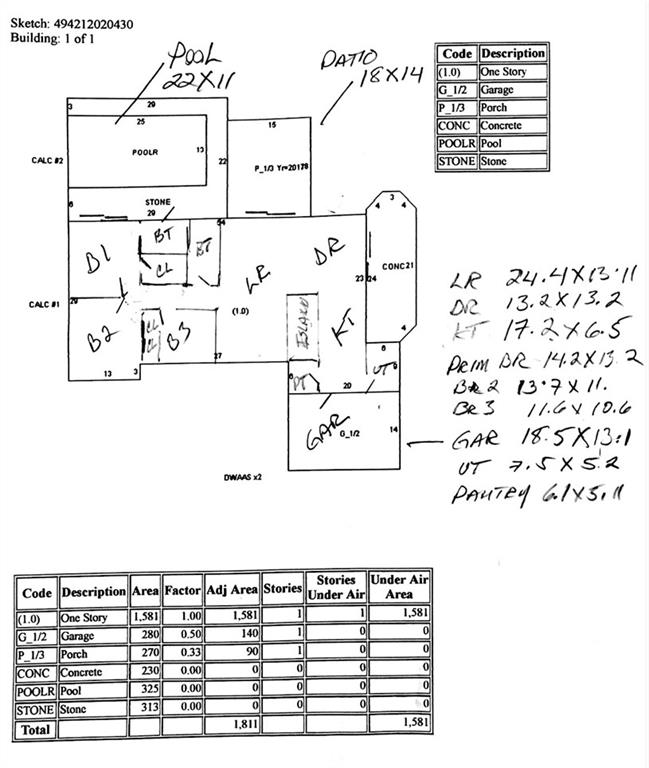 Sketch: 494212020430
Building: 1 of 1
POOL
22X11
PATIO
18X14
Code Description
(1.0) One Story
G_1/2 Garage
P_1/3 Porch
CONC Concrete
POOLR Pool
STONE Stone
3
29
25
15
CALC #2
POOLR
13
22
P_1/3 Yr=2017
3
4
4
6
STONE
29
54
B1
BT
BT
CL
LR
DR
CONC
21
23
24
29
CALC #1
(1.0)
B2
CL
CL
B3
ISLAND
KT
4
27
6
13
3
6
PT
20
UT
GAR
G_1/2
14
DWAAS x2
LR 24.4X13.11
DR 13.2X13.2
KT 17.2X6.5
PRIM BR 14.2X13.2
BR2 13.7X11.
BR3 11.6X10.6
GAR 18.5X13.1
UT 7.5X5.2
PANTRY 6.1X5.11
Code Description Area Factor Adj Area Stories Stories Under Air Under Air Area
(1.0) One Story 1,581 1.00 1,581 1 1 1,581
G_1/2 Garage 280 0.50 140 1 0 0
P_1/3 Porch 270 0.33 90 1 0 0
CONC Concrete 230 0.00 0 0 0 0
POOLR Pool 325 0.00 0 0 0 0
STONE Stone 313 0.00 0 0 0 0
Total 1,811 1,581